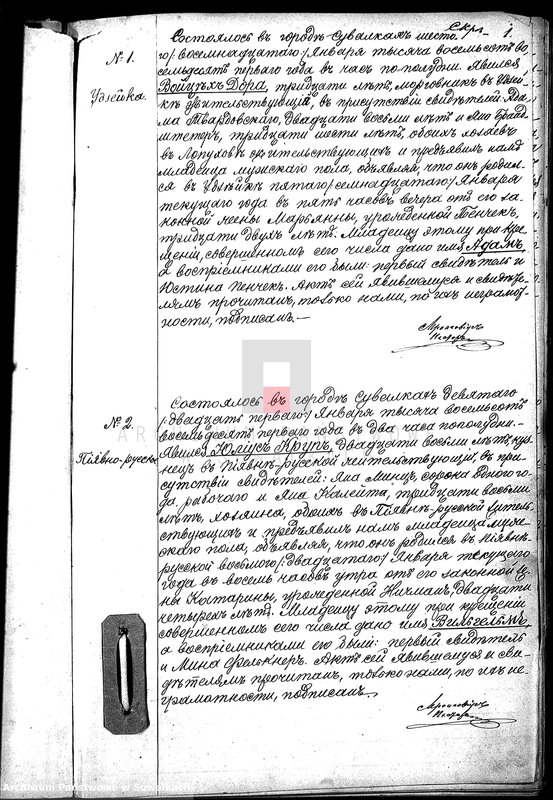 1.
№ 1.
Состоялось въ городѣ Сувалкахъ шесто-
го /восемнадцатаго/ Января тысяча восемьсотъ во-
семьдесятъ перваго года въ часъ по полудни. Явился
Войцѣхъ Дора, тридцати лѣтъ,
жительствующій, въ присутствіи свидѣтелей: Ада-
ма Твардовскаго, двадцати восьми лѣтъ и
тридцати шести лѣтъ, обоихъ хозяевъ
въ Лопуховѣ жительствующихъ и предъявилъ намъ
младенца мужскаго пола, объявляя, что онъ родил-
ся въ пятаго /семнадцатаго/ Января
текущаго года въ пять часовъ вечера отъ его за-
конной жены Марьянны, урожденной Пенчекъ,
тридцати двухъ лѣтъ. Младенцу этому при кре-
щеніи, совершенномъ сего числа дано имя Адамъ,
а воспріемниками его были: первый свидѣтель и
Юстина Пенчекъ. Актъ сей явившемуся и свидѣте-
лямъ прочитанъ, только нами, по ихъ неграмот-
ности, подписанъ.—
№ 2.
Піявно-русске
Состоялось въ городѣ Сувалкахъ девятаго
/двадцать перваго/ Января тысяча восемьсотъ
восемьдесятъ перваго года въ два часа пополудни.-
Явился Юліусъ Крупъ, двадцати восьми лѣтъ, куз-
нецъ въ Піявнѣ-русской жительствующій, въ при-
сутствіи свидѣтелей: Яна Минцъ, сорока одного го-
да, рабочаго и Яна Калейта, тридцати восьми
лѣтъ, хозяина, обоихъ въ Піявнѣ-русской житель-
ствующихъ и предъявилъ намъ младенца муж-
скаго пола, объявляя, что онъ родился въ Піявнѣ-
русской восьмого /двадцатаго/ Января текущаго
года въ восемь часовъ утра отъ его законной же-
ны Катарины, урожденной двадцати
четырехъ лѣтъ. Младенцу этому при крещеніи
совершенномъ сего числа дано имя Вильгельмъ,
а воспріемниками его были: первый свидѣтель
и Мина Фелькнеръ. Актъ сей явившемуся и сви-
дѣтелямъ прочитанъ, только нами, по ихъ не-
грамотности, подписанъ.
Archiwum Państwowe w Suwałkach